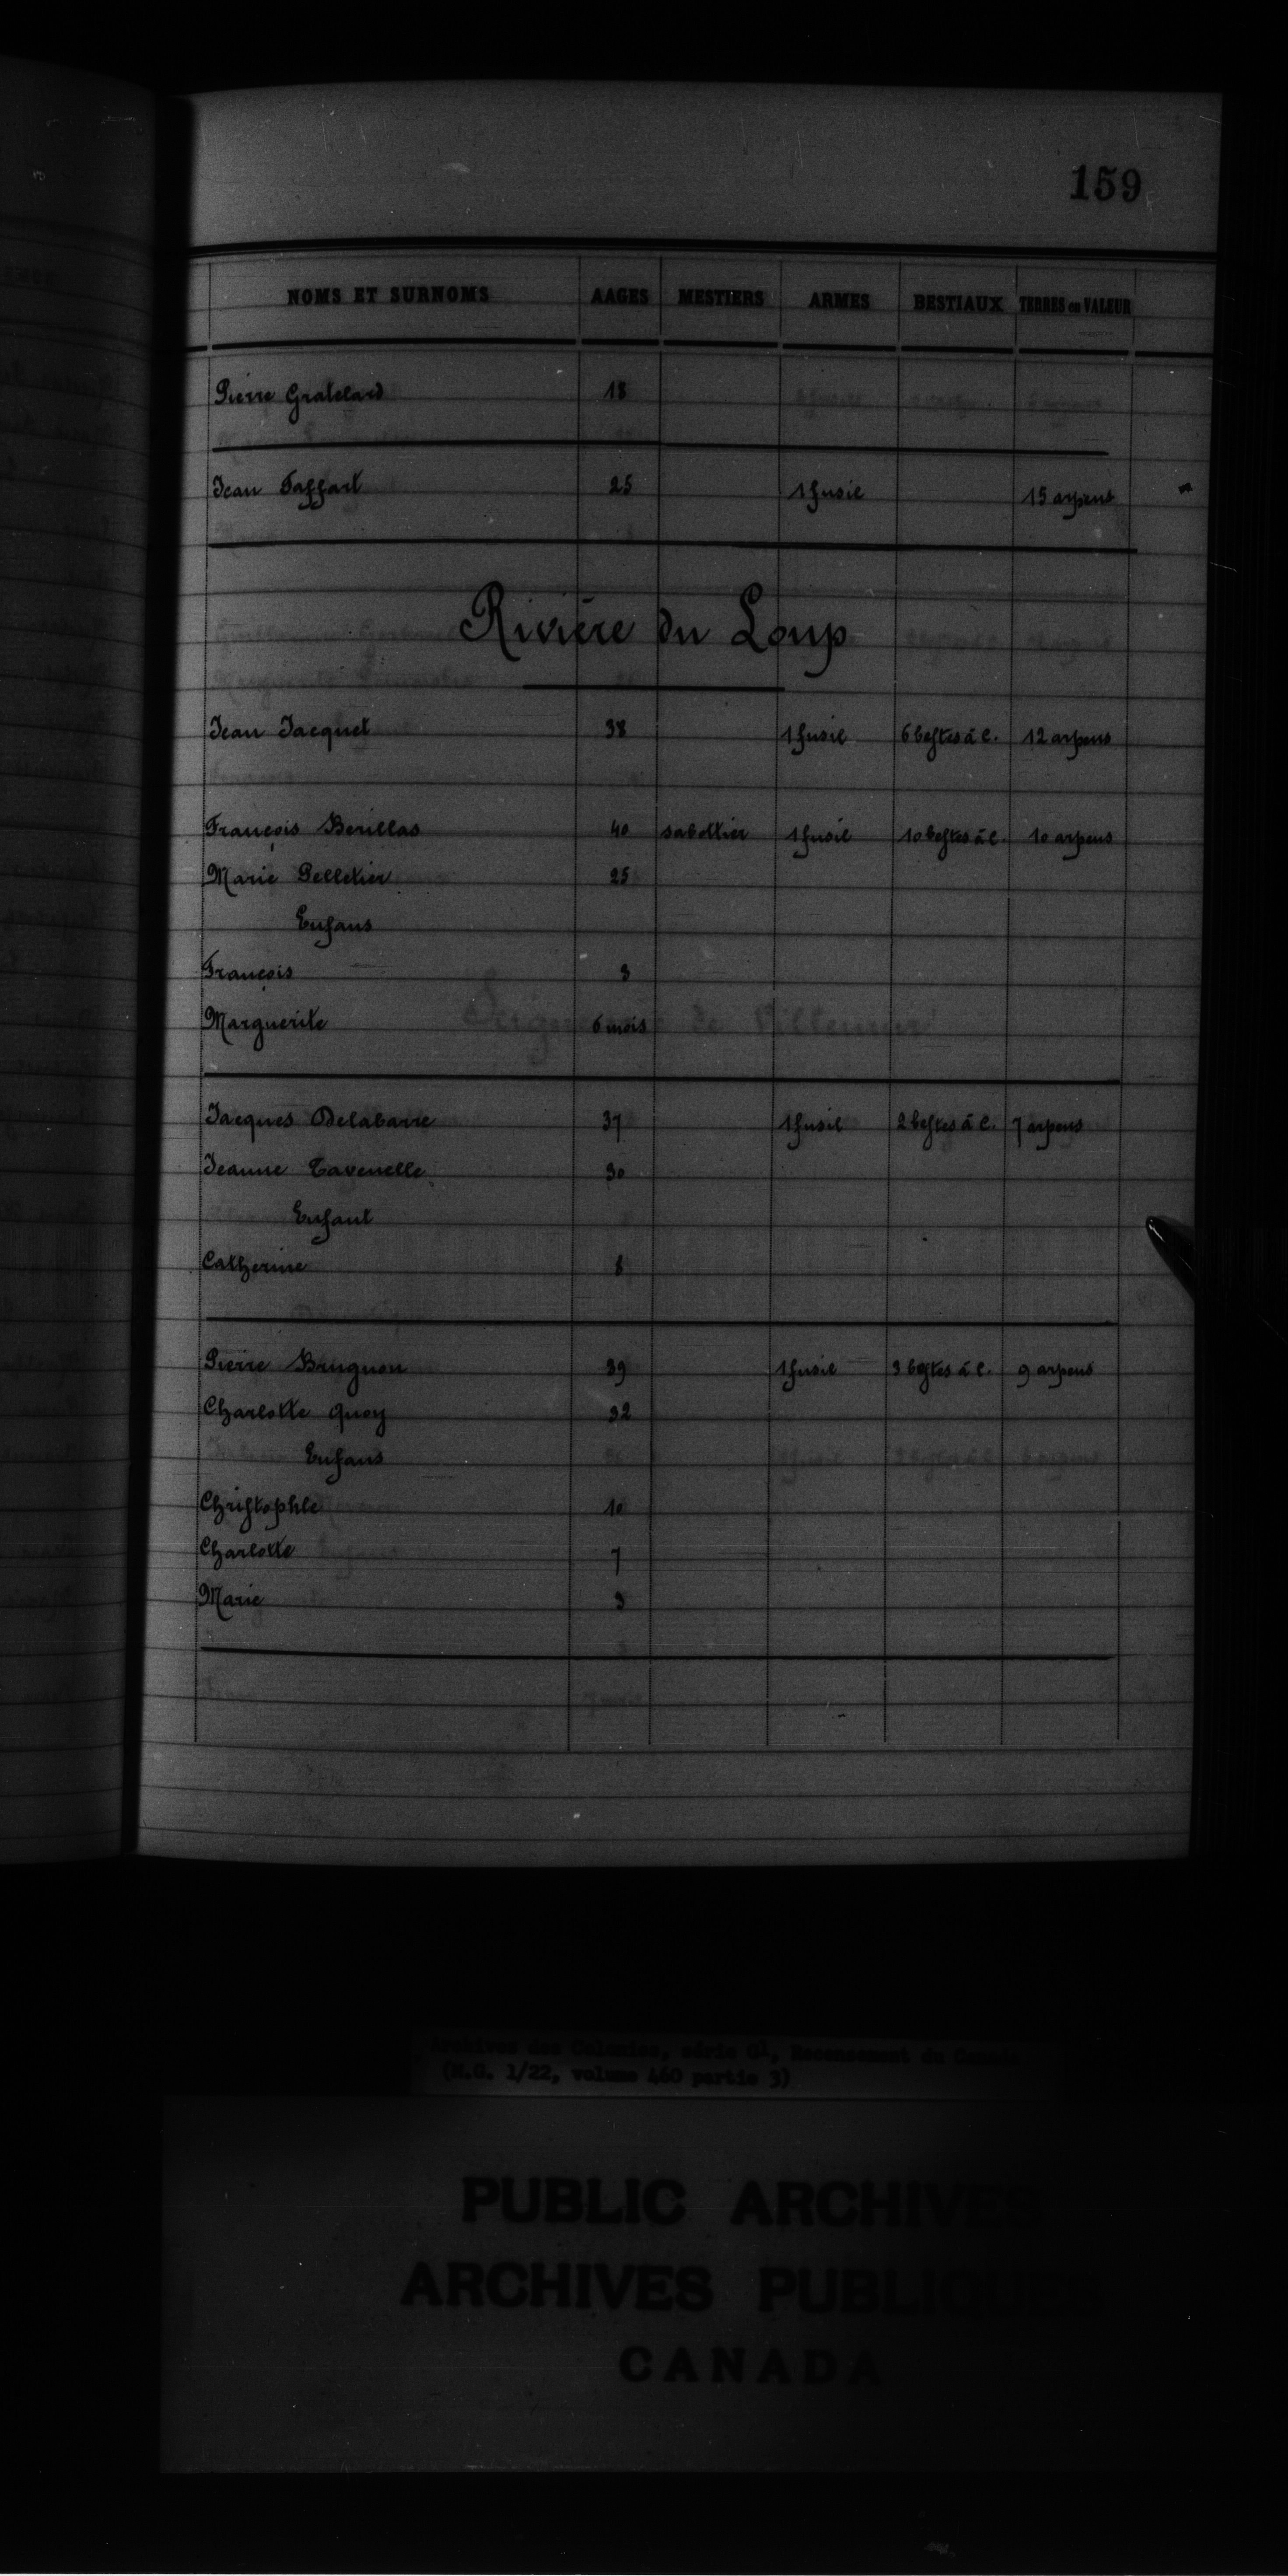 159
NOMS ET SURNOMS AAGES MESTIERS ARMES BESTIAUX TERRES ou VALEUR
Pierre Gratelard 18
Jean Taffart 25 1 fusil 15 arpens
Rivière du Loup
Jean Jacquet 38 1 fusil 6 bestes à c. 12 arpens
François Berillas 40 sabottier 1 fusil 10 bestes à c. 10 arpens
Marie Pelletier 25
Enfans
François 3
Marguerite 6 mois
Jacques Delabarre 37 1 fusil 2 bestes à c. 7 arpens
Jeanne Tavenelle 30
Enfant
Catherine
Pierre Brugnon 39 1 fusil 3 bestes à c. 9 arpens
Charlotte Quoy 32
Enfans
Christophle 10
Charlotte 7
Marie 3
Archives des Colonies, série G1, Recensement du Canada
(M.G. 1/22, volume 460 partie 3)
PUBLIC ARCHIVES
ARCHIVES PUBLIQUES
CANADA